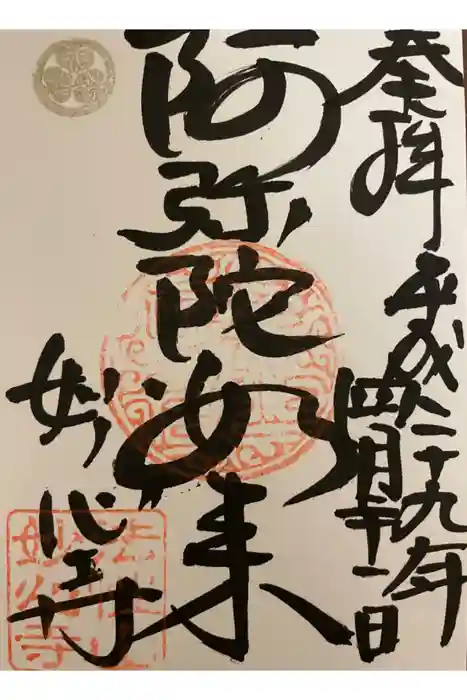 奉拝
平成二十九年
四月十一日
阿弥陀如来
妙心寺
妙心寺